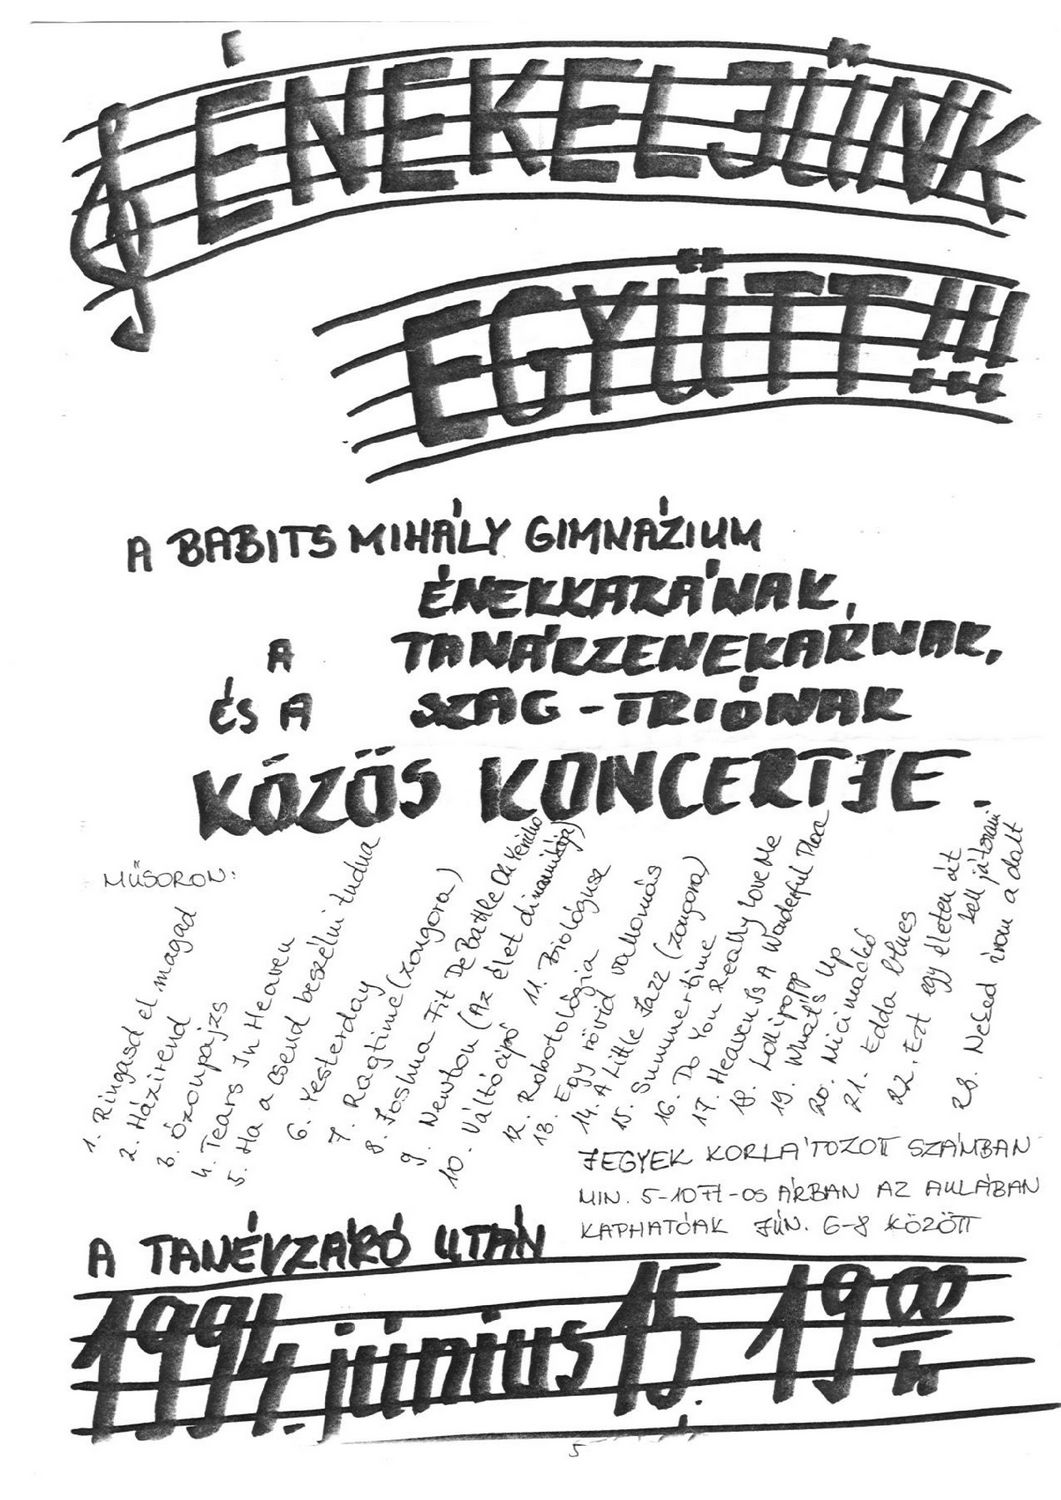 ÉNEKELJÜNK
EGYÜTT!!!
A BABITS MIHÁLY GIMNÁZIUM
ÉNEKKARÁNAK,
A TANÁRZENEKARNAK,
ÉS A SZAG-TRIÓNAK
KÖZÖS KONCERTJE.
MŰSORON:
1. Ringasd el magad
2. Házirend
3. Ózonpajzs
4. Tears In Heaven
5. Ha a csend beszélni tudna
6. Yesterday
7. Ragtime (zongora)
8. Joshua Fit De Battle Ob Jericho
9. Newton (Az élet dinamikája)
10. Váltócipő
11. Biológusz
12. Robotológia
13. Egy rövid vallomás
14. A Little Jazz (zongora)
15. Summertime
16. Do You Really Love Me
17. Heaven Is A Wonderful Place
18. Lollipopp
19. What's Up
20. Micimackó
21. Edda blues
22. Ezt egy életen át
kell játszani
23. Neked írom a dalt
JEGYEK KORLÁTOZOTT SZÁMBAN
MIN. 5-10 Ft-OS ÁRBAN AZ AULÁBAN
KAPHATÓAK JÚN. 6-8 KÖZÖTT
A TANÉVZÁRÓ UTÁN
1994. június 15. 19 00 h
5